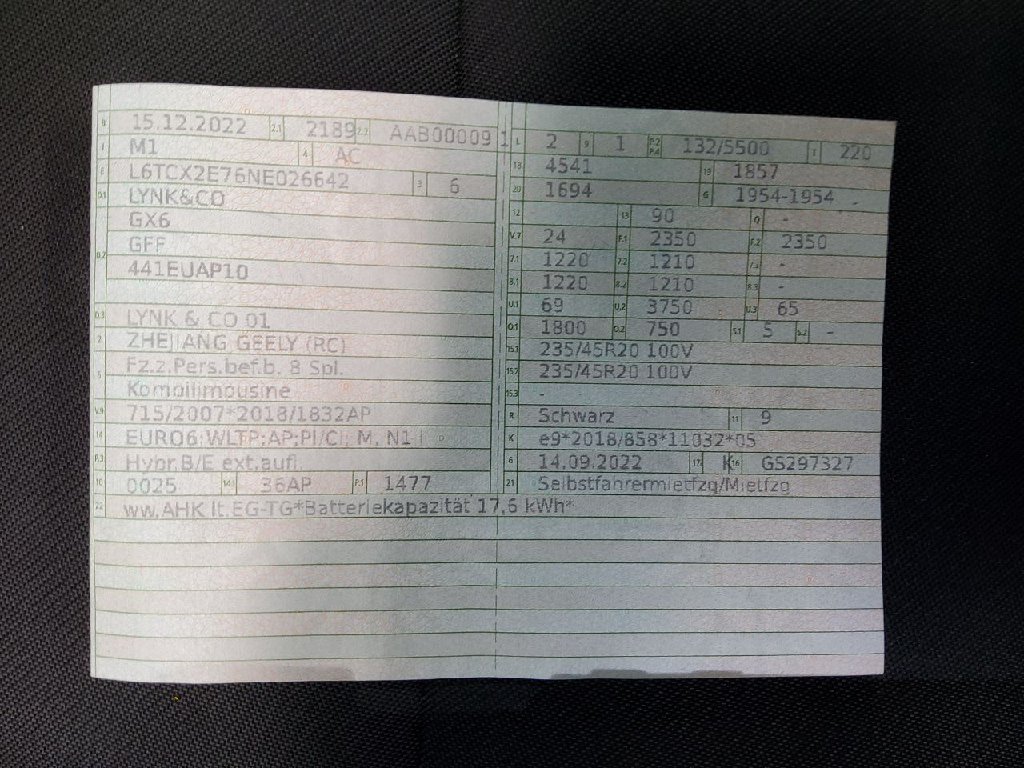 B 15.12.2022 2.1 2189 2.2 AAB00009 1
J M1 4 AC
E L6TCX2E76NE026642 3 6
D.1 LYNK&CO
GX6
D.2 GFF
441EUAP10
D.3 LYNK & CO 01
2 ZHEJIANG GEELY (RC)
5 Fz.z.Pers.bef.b. 8 Spl.
Kombilimousine
V.9 715/2007*2018/1832AP
14 EURO6;WLTP;AP;PI/CI; M, N1 I
P.3 Hybr.B/E ext.aufl.
10 0025 14.1 36AP P.1 1477
22 ww.AHK lt.EG-TG*Batteriekapazität 17,6 kWh*
L 2 9 1 P.2 P.4 132/5500 T 220
18 4541 19 1857
20 1694 G 1954-1954
12 - 13 90 Q -
V.7 24 F.1 2350 F.2 2350
7.1 1220 7.2 1210 7.3 -
8.1 1220 8.2 1210 8.3 -
U.1 69 U.2 3750 U.3 65
O.1 1800 O.2 750 S.1 5 S.2 -
15.1 235/45R20 100V
15.2 235/45R20 100V
15.3 -
R Schwarz 11 9
K e9*2018/858*11032*05
6 14.09.2022 17 K 16 GS297327
21 Selbstfahrermietfzg/Mietfzg